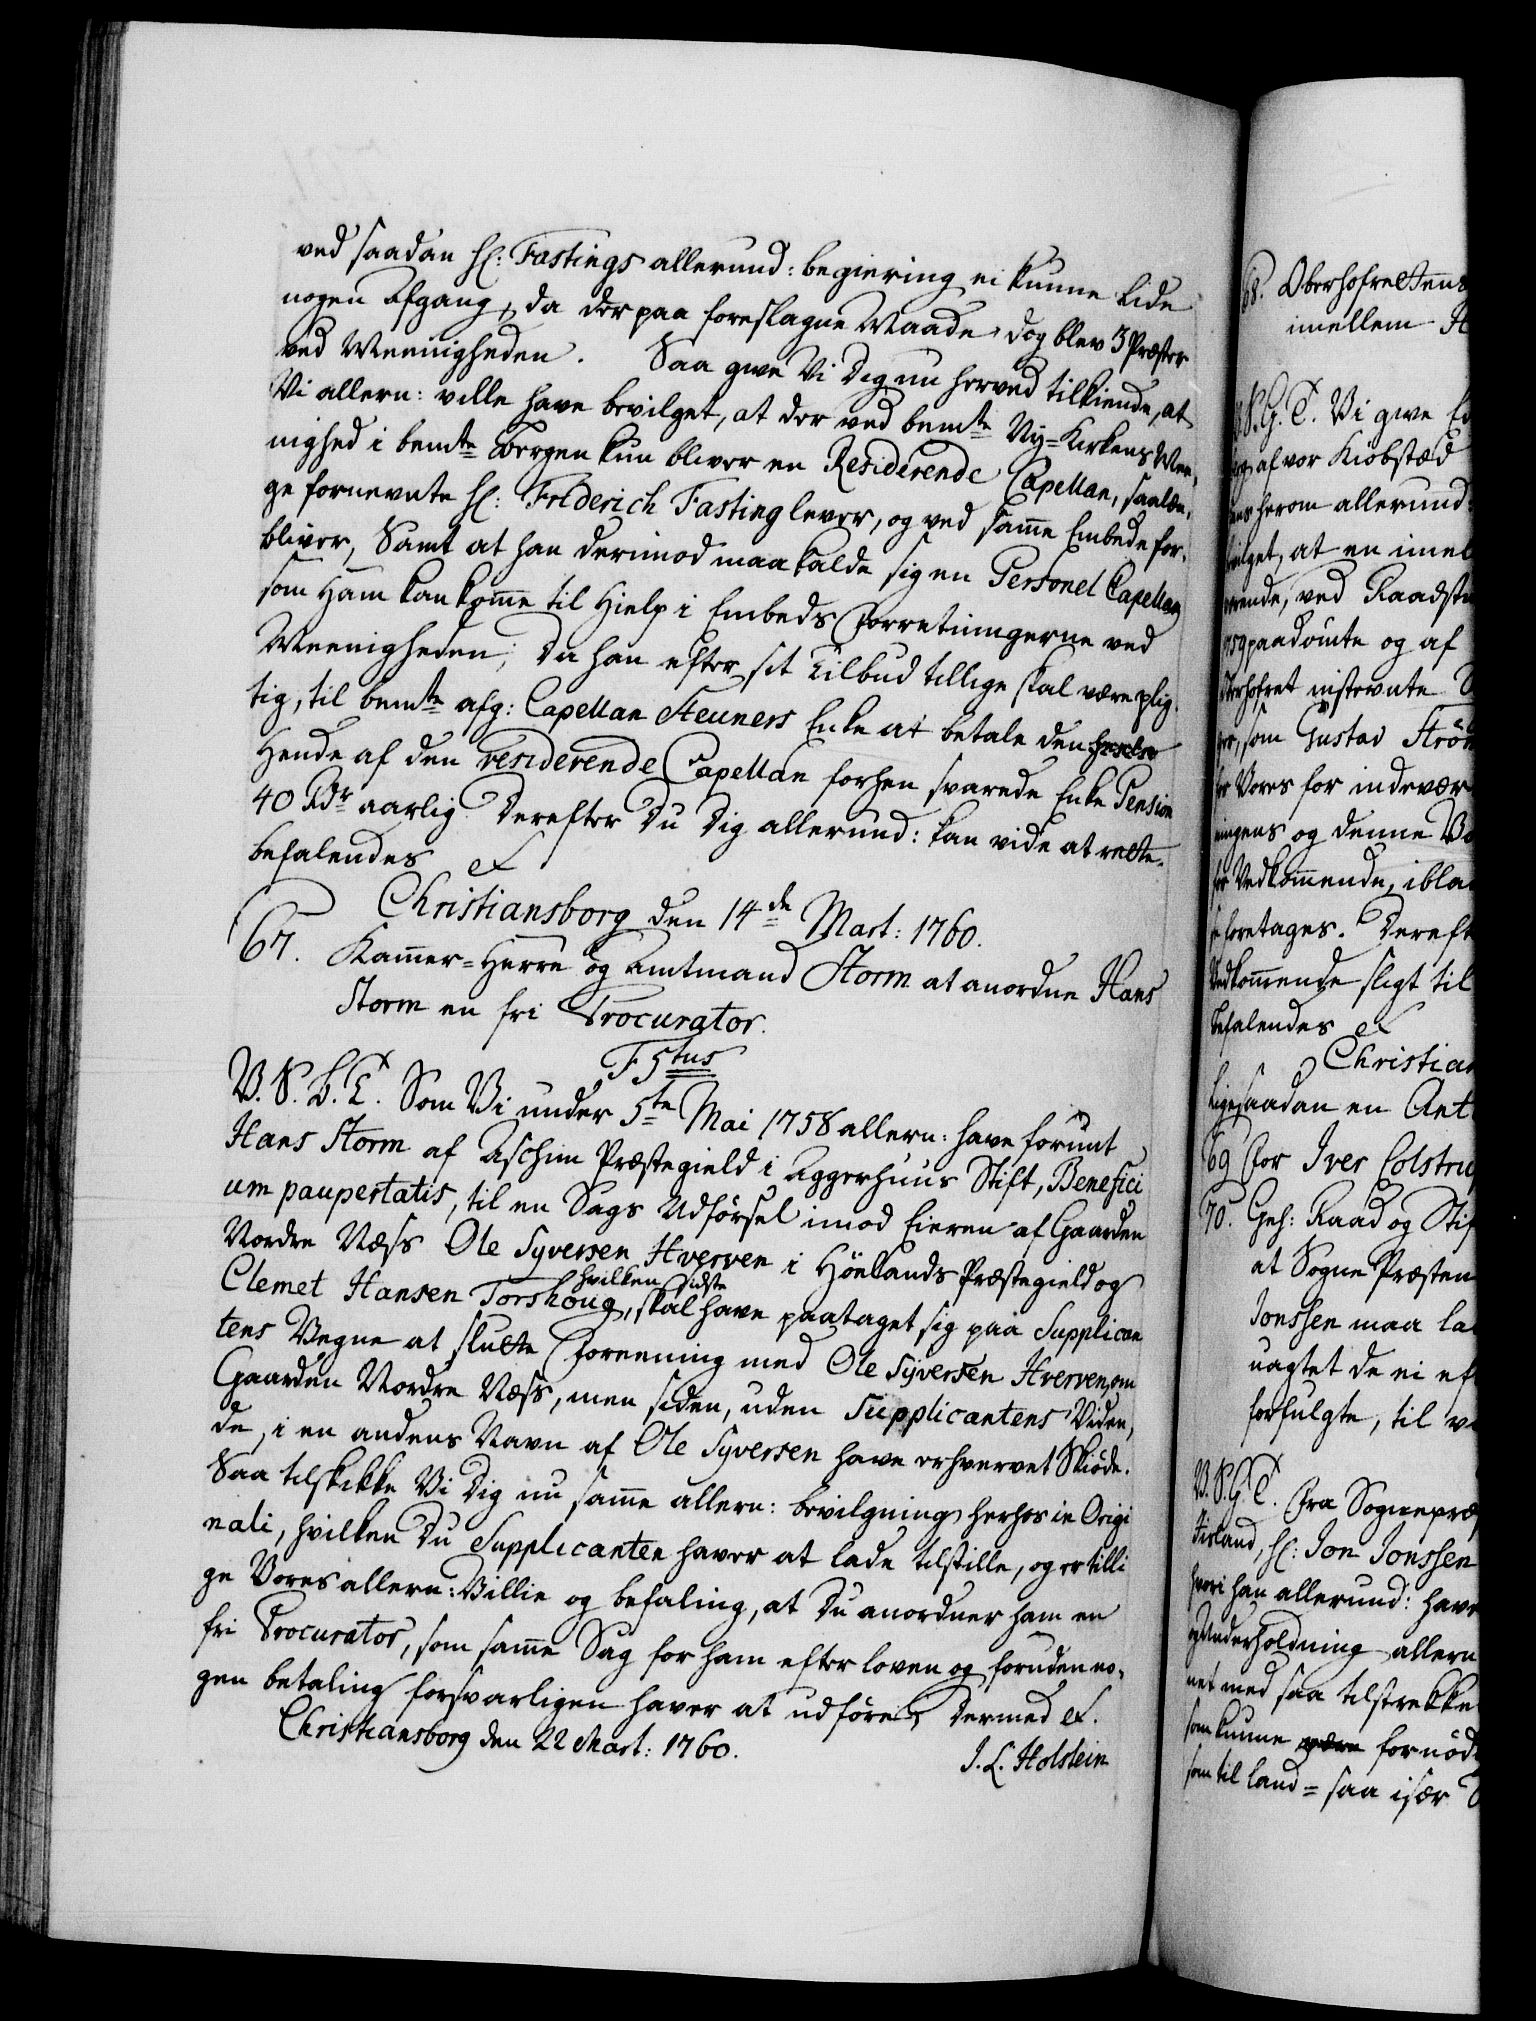 ved saadan Hr: Fastings allerund: begiering ei kunne lide
nogen Afgang, da der paa foreslagne Maade dog blev 3 Præster
ved Meenigheden. Saa give Vi Dig nu herved tilkiende, at
Vi allern: ville have bevilget, at der ved bemte Ny-Kirkens Mee-
nighed i bemte Bergen kun bliver en Residerende Capellan, saalæn-
ge fornevnte Hr: Friderich Fasting lever, og ved samme Embede for-
bliver, Samt at han derimod maa kalde sig en Personel Capellan
som Ham kan komme til Hielp i Embeds Forretningerne ved
Meenigheden; Da han efter sit Tilbud tillige skal være plig-
tig, til bemte afg: Capellan Steuners Enke at betale den
Hende af den residerende Capellan forhen svarede Enke Pension
40 Rdr aarlig. Derefter Du Dig allerund: kan vide at rette.
befalendes
Christiansborg den 14de Mart: 1760.
67. Kammer-Herre og Amtmand Storm at anordne Hans
Storm en fri Procurator.
F 5tus
V. S. G. T. Som Vi under 5te Mai 1758 allern: have forundt
Hans Storm af Aschim Præstegield i Aggershuus Stift, Benefici
um paupertatis, til en Sags Udförsel imod Eieren af Gaarden
Nordre Næss Ole Syversen Hverven i Höelands Præstegield og
Clemet Hansen Torshoug, hvilken sidste skal have paataget sig paa Supplican
tens Vegne at slutte Foreening med Ole Syversen Hverven, om
Gaarden Nordre Næss, men siden, uden Supplicantens Viden-
de, i en andens Navn af Ole Syversen have erhvervet Skiöde.
Saa tilskikke Vi Dig nu samme allern: bevilgning herhos in Origi
nali, hvilken Du Supplicanten haver at lade tilstille, og er tilli
ge Vores allern: Villie og befaling, at Du anordner ham en
fri Procurator, som samme Sag for ham efter loven og foruden no-
gen betaling forsvarligen haver at udföre; Dermed
Christiansborg den 22 Mart: 1760.
J. L. Holstein
68. Oberhofrettens
imellem
V. S. G. T. Vi give
af vor Kiöbstæd
herom allerund:
at en imel
ved Raadst
paadömte og af
indstevnte
som Gustav Ström
Vores for indevær
ningens og denne
Vedkommende, ibla
foretages. Dereft
Vedkommende sligt til
befalendes
Christian
Ligesaadan en Ant
69 For Iver Colstru
70. Geh: Raad og Stif
at Sogne Præsten
Jonssen maa la
uagtet de ei ef
forfulgte, til
V. S. G. T. Fra Sognepræ
Hr: Jon Jonssen
hvori han allerund: have
Underholdning allern
net med saa tilstrekke
som kunne være fornöd
som til land- saa især